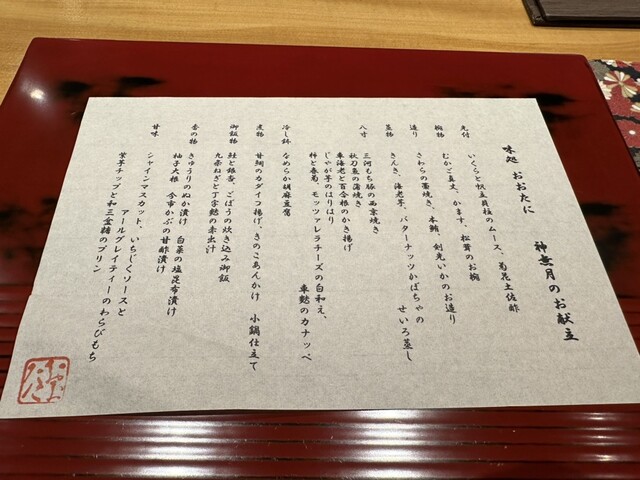 味処 おおたに 神無月のお献立
先付 いくらと帆立貝柱のムース、菊花土佐酢
椀物 むかご真丈、かます、松茸のお椀
造り さわらの藁焼き、本鮪、剣先いかのお造り
蒸物 きんき、海老芋、バターナッツかぼちゃの
せいろ蒸し
八寸 三河もち豚の西京焼き
秋刀魚の蒲焼き
車海老と百合根のかき揚げ
じゃが芋のはりはり
柿と春菊、モッツァレラチーズの白和え、
車麩のカナッペ
冷し鉢 なめらか胡麻豆腐
煮物 甘鯛のカダイフ揚げ、きのこあんかけ 小鍋仕立て
御飯物 鮭と銀杏、ごぼうの炊き込み御飯
九条ねぎと丁字麩の赤出汁
香の物 きゅうりのぬか漬け 白菜の塩昆布漬け
柚子大根 今市かぶの甘酢漬け
甘味 シャインマスカット、いちじくソースと
アールグレイティーのわらびもち
紫芋チップと和三盆糖のプリン